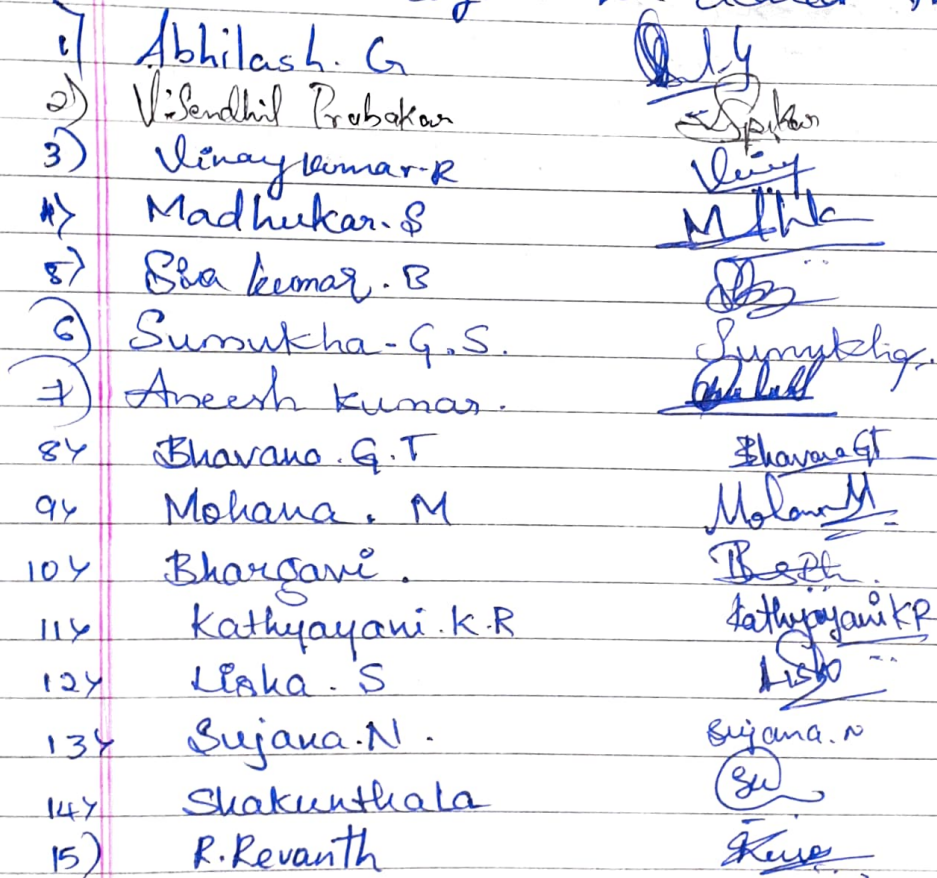 1) Abhilash. G
2) V. Sendhil Prabakar
3) Vinay kumar-R Vinay
4) Madhukar. S
5) Siva kumar. B
6) Sumukha - G. S. Sumukha.
7) Aneesh kumar.
8) Bhavana. G. T Bhavana GT
9) Mohana. M Mohana M
10) Bhargavi.
11) Kathyayani. K. R Kathyayani KR
12) Liska. S Liska
13) Sujana. N. Sujana. N
14) Shakunthala Su
15) R. Revanth